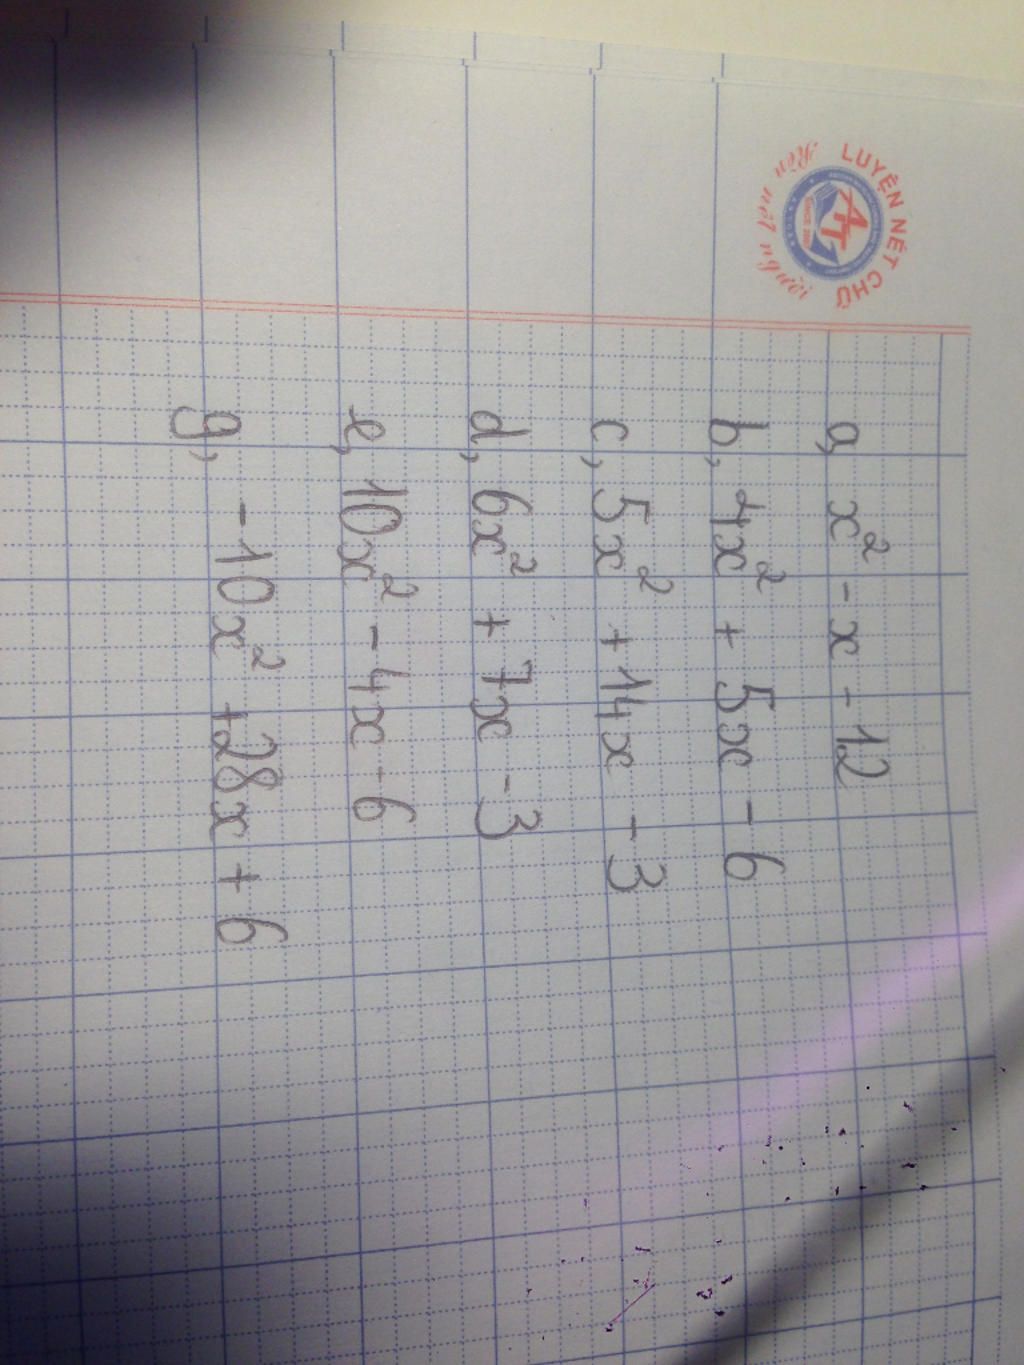 LUYỆN NÉT CHỮ
Rèn nết người
SINCE 2001
a, x² - x - 12
b, 4x² + 5x - 6
c, 5x² + 14x - 3
d, 6x² + 7x - 3
e, 10x² - 4x - 6
g, - 10x² + 28x + 6